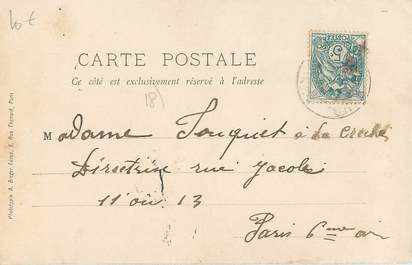 10€
CARTE POSTALE
Ce côté est exclusivement réservé à l'adresse
(8)
Madame Fouquet à la Crèche
Directrice rue Jacob
11 où 13
Paris 6me arr
Phototypie A. Breger frères, 9, Rue Thénard, Paris
5